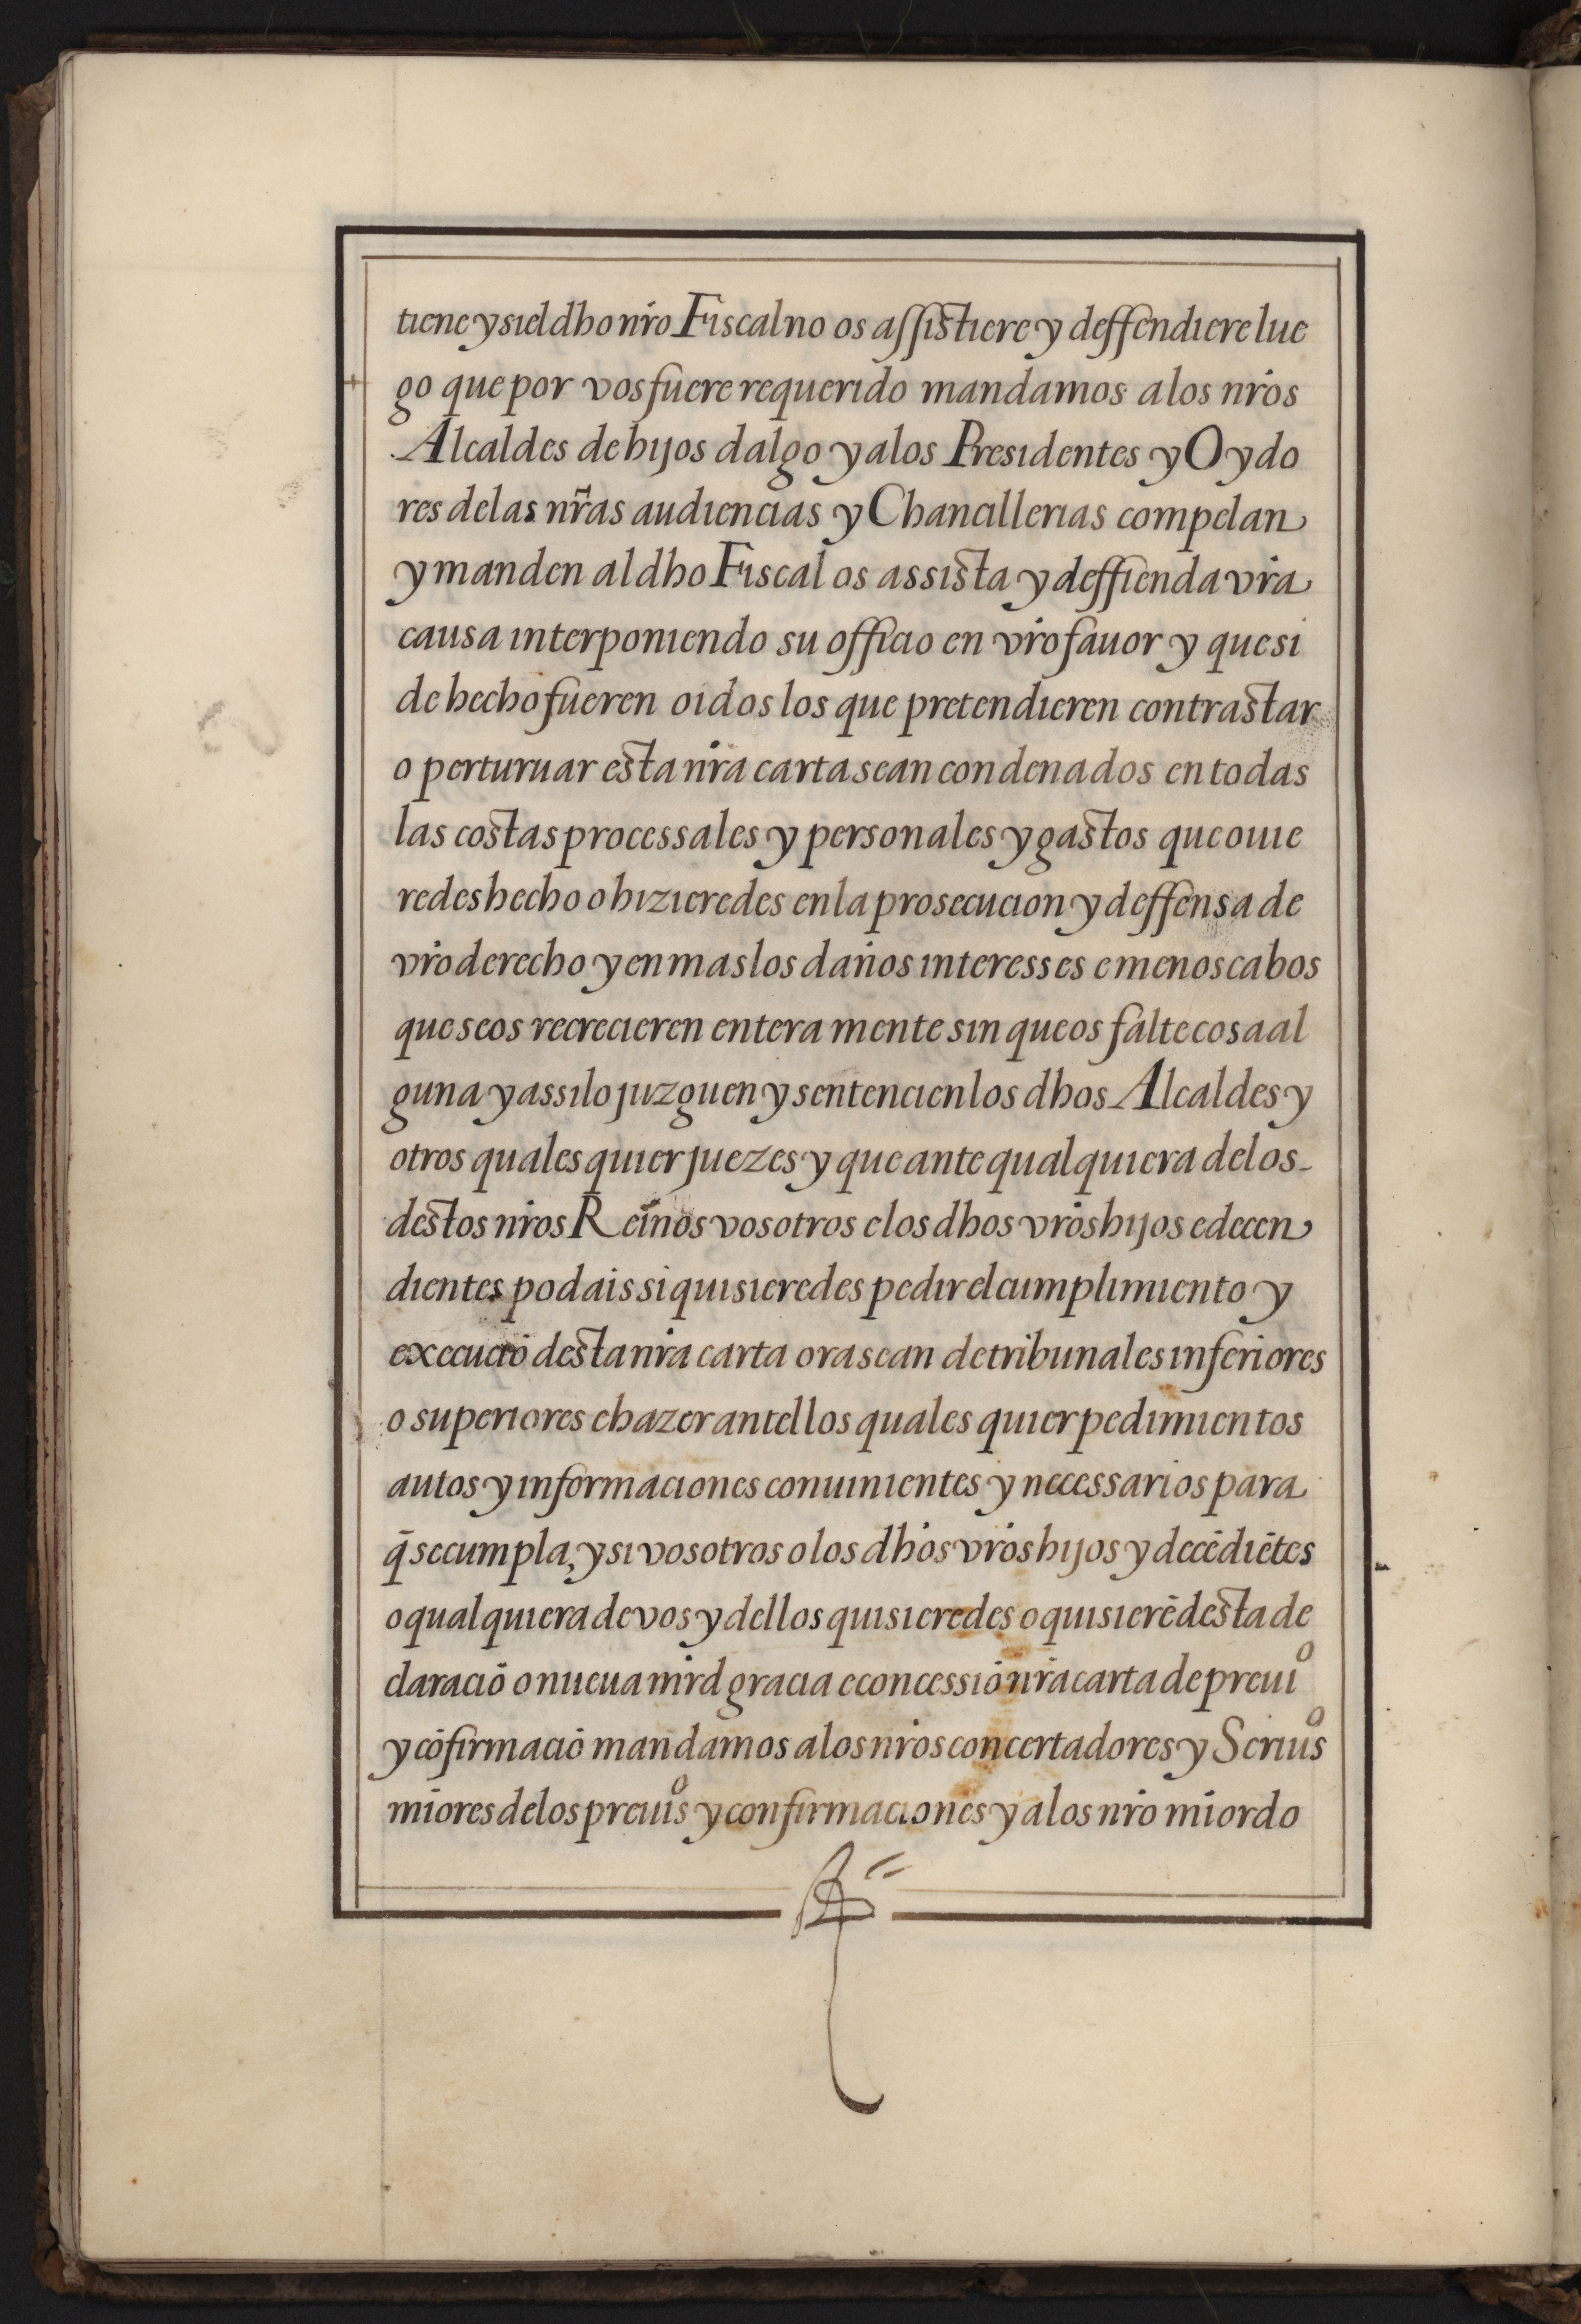 tiene y si el dho nr̃o Fiscal no os assistiere y deffendiere lue
go que por vos fuere requerido mandamos a los nr̃os
Alcaldes de hijos dalgo y a los Presidentes y Oydo
res de las nr̃as audiencias y Chancillerias compelan
y manden al dho Fiscal os assista y deffienda vr̃a
causa interponiendo su officio en vr̃o fauor y que si
de hecho fueren oidos los que pretendieren contrastar
o perturuar esta nr̃a carta sean condenados en todas
las costas processales y personales y gastos que ouie
redes hecho o hizieredes en la prosecucion y deffensa de
vr̃o derecho y en mas los daños interesses e menoscabos
que se os recrecieren entera mente sin que os falte cosa al
guna y assi lo juzguen y sentencien los dhos Alcaldes y
otros quales quier juezes y que ante qualquiera de los-
destos nr̃os Reinos vosotros e los dhos vr̃os hijos e decen
dientes podais si quisieredes pedir el cumplimiento y
execuciō desta nr̃a carta ora sean de tribunales inferiores
o superiores e hazer antellos quales quier pedimientos
autos y informaciones conuinientes y necessarios para
q̄ se cumpla, y si vosotros o los dhos vr̃os hijos y decēdiētes
o qualquiera de vos y dellos quisieredes o quisierē desta de
claraciō o nueua mr̃d gracia e concessiō nr̃a carta de preuiº
y cōfirmaciō mandamos a los nr̃os concertadores y Scriuºs
miores de los preuiºs y confirmaciones y a los nr̃o mior do